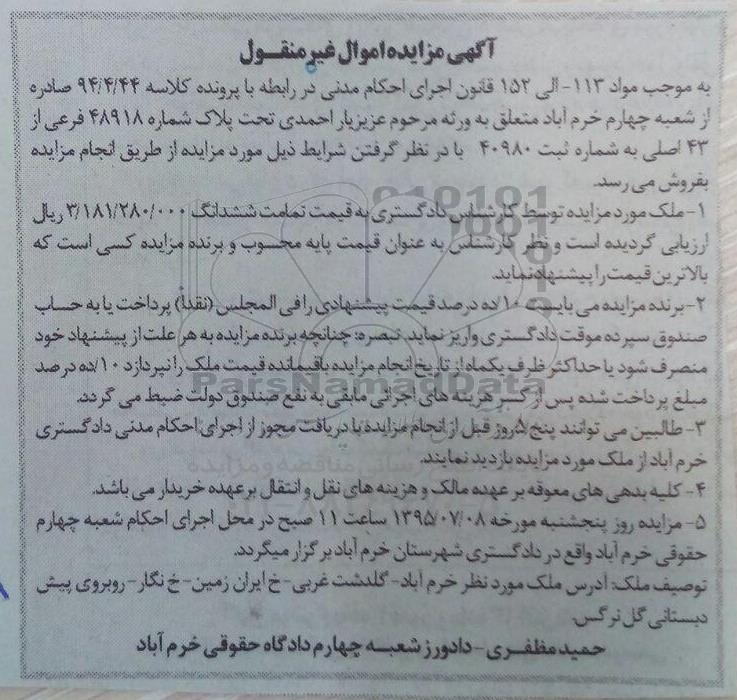 آگهی مزایده اموال غیر منقـول
به موجب مواد ۱۱۳- الی ۱۵۲ قانون اجرای احکام مدنی در رابطه با پرونده کلاسه ۹۴/۴/۴۴ صادره
از شعبه چهارم خرم آباد متعلق به ورثه مرحوم عزیزیار احمدی تحت پلاک شماره ۴۸۹۱۸ فرعی از
۴۳ اصلی به شماره ثبت ۴۰۹۸۰ با در نظر گرفتن شرایط ذیل مورد مزایده از طریق انجام مزایده
بفروش می رسد.
۱- ملک مورد مزایده توسط کارشناس دادگستری به قیمت تمامت ششدانگ ۳/۱۸۱/۲۸۰/۰۰۰ ریال
ارزیابی گردیده است و نظر کارشناس به عنوان قیمت پایه محسوب و برنده مزایده کسی است که
بالاترین قیمت را پیشنهاد نماید.
۲- برنده مزایده می بایست ۱۰/ده درصد قیمت پیشنهادی را فی المجلس (نقداً) پرداخت یا به حساب
صندوق سپرده موقت دادگستری واریز نماید. تبصره: چنانچه برنده مزایده به هر علت از پیشنهاد خود
منصرف شود یا حداکثر ظرف یکماه از تاریخ انجام مزایده باقیمانده قیمت ملک را نپردازد ۱۰/ده درصد
مبلغ پرداخت شده پس از کسر هزینه های اجرائی مابقی به نفع صندوق دولت ضبط می گردد.
۳- طالبین می توانند پنج ۵روز قبل از انجام مزایده با دریافت مجوز از اجرای احکام مدنی دادگستری
خرم آباد از ملک مورد مزایده بازدید نمایند.
۴- کلیه بدهی های معوقه بر عهده مالک و هزینه های نقل و انتقال بر عهده خریدار می باشد.
۵- مزایده روز پنجشنبه مورخه ۱۳۹۵/۰۷/۰۸ ساعت ۱۱ صبح در محل اجرای احکام شعبه چهارم
حقوقی خرم آباد واقع در دادگستری شهرستان خرم آباد برگزار میگردد.
توصیف ملک: آدرس ملک مورد نظر خرم آباد- گلدشت غربی- خ ایران زمین- خ نگار- روبروی پیش
دبستانی گل نرگس.
حمید مظفری- دادورز شعبه چهارم دادگاه حقوقی خرم آباد
ParsNamadData